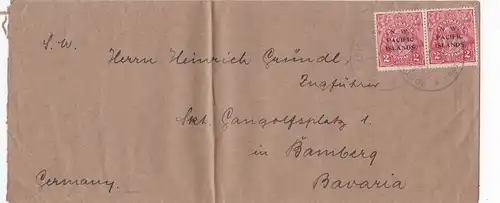 N. W.
PACIFIC
ISLANDS.
2
2
N. W.
PACIFIC
ISLANDS.
2
2
S. W.
Herrn Heinrich Gründl,
Zugführer
Skt. Gangolfsplatz 1.
in Bamberg
Germany.
Bavaria